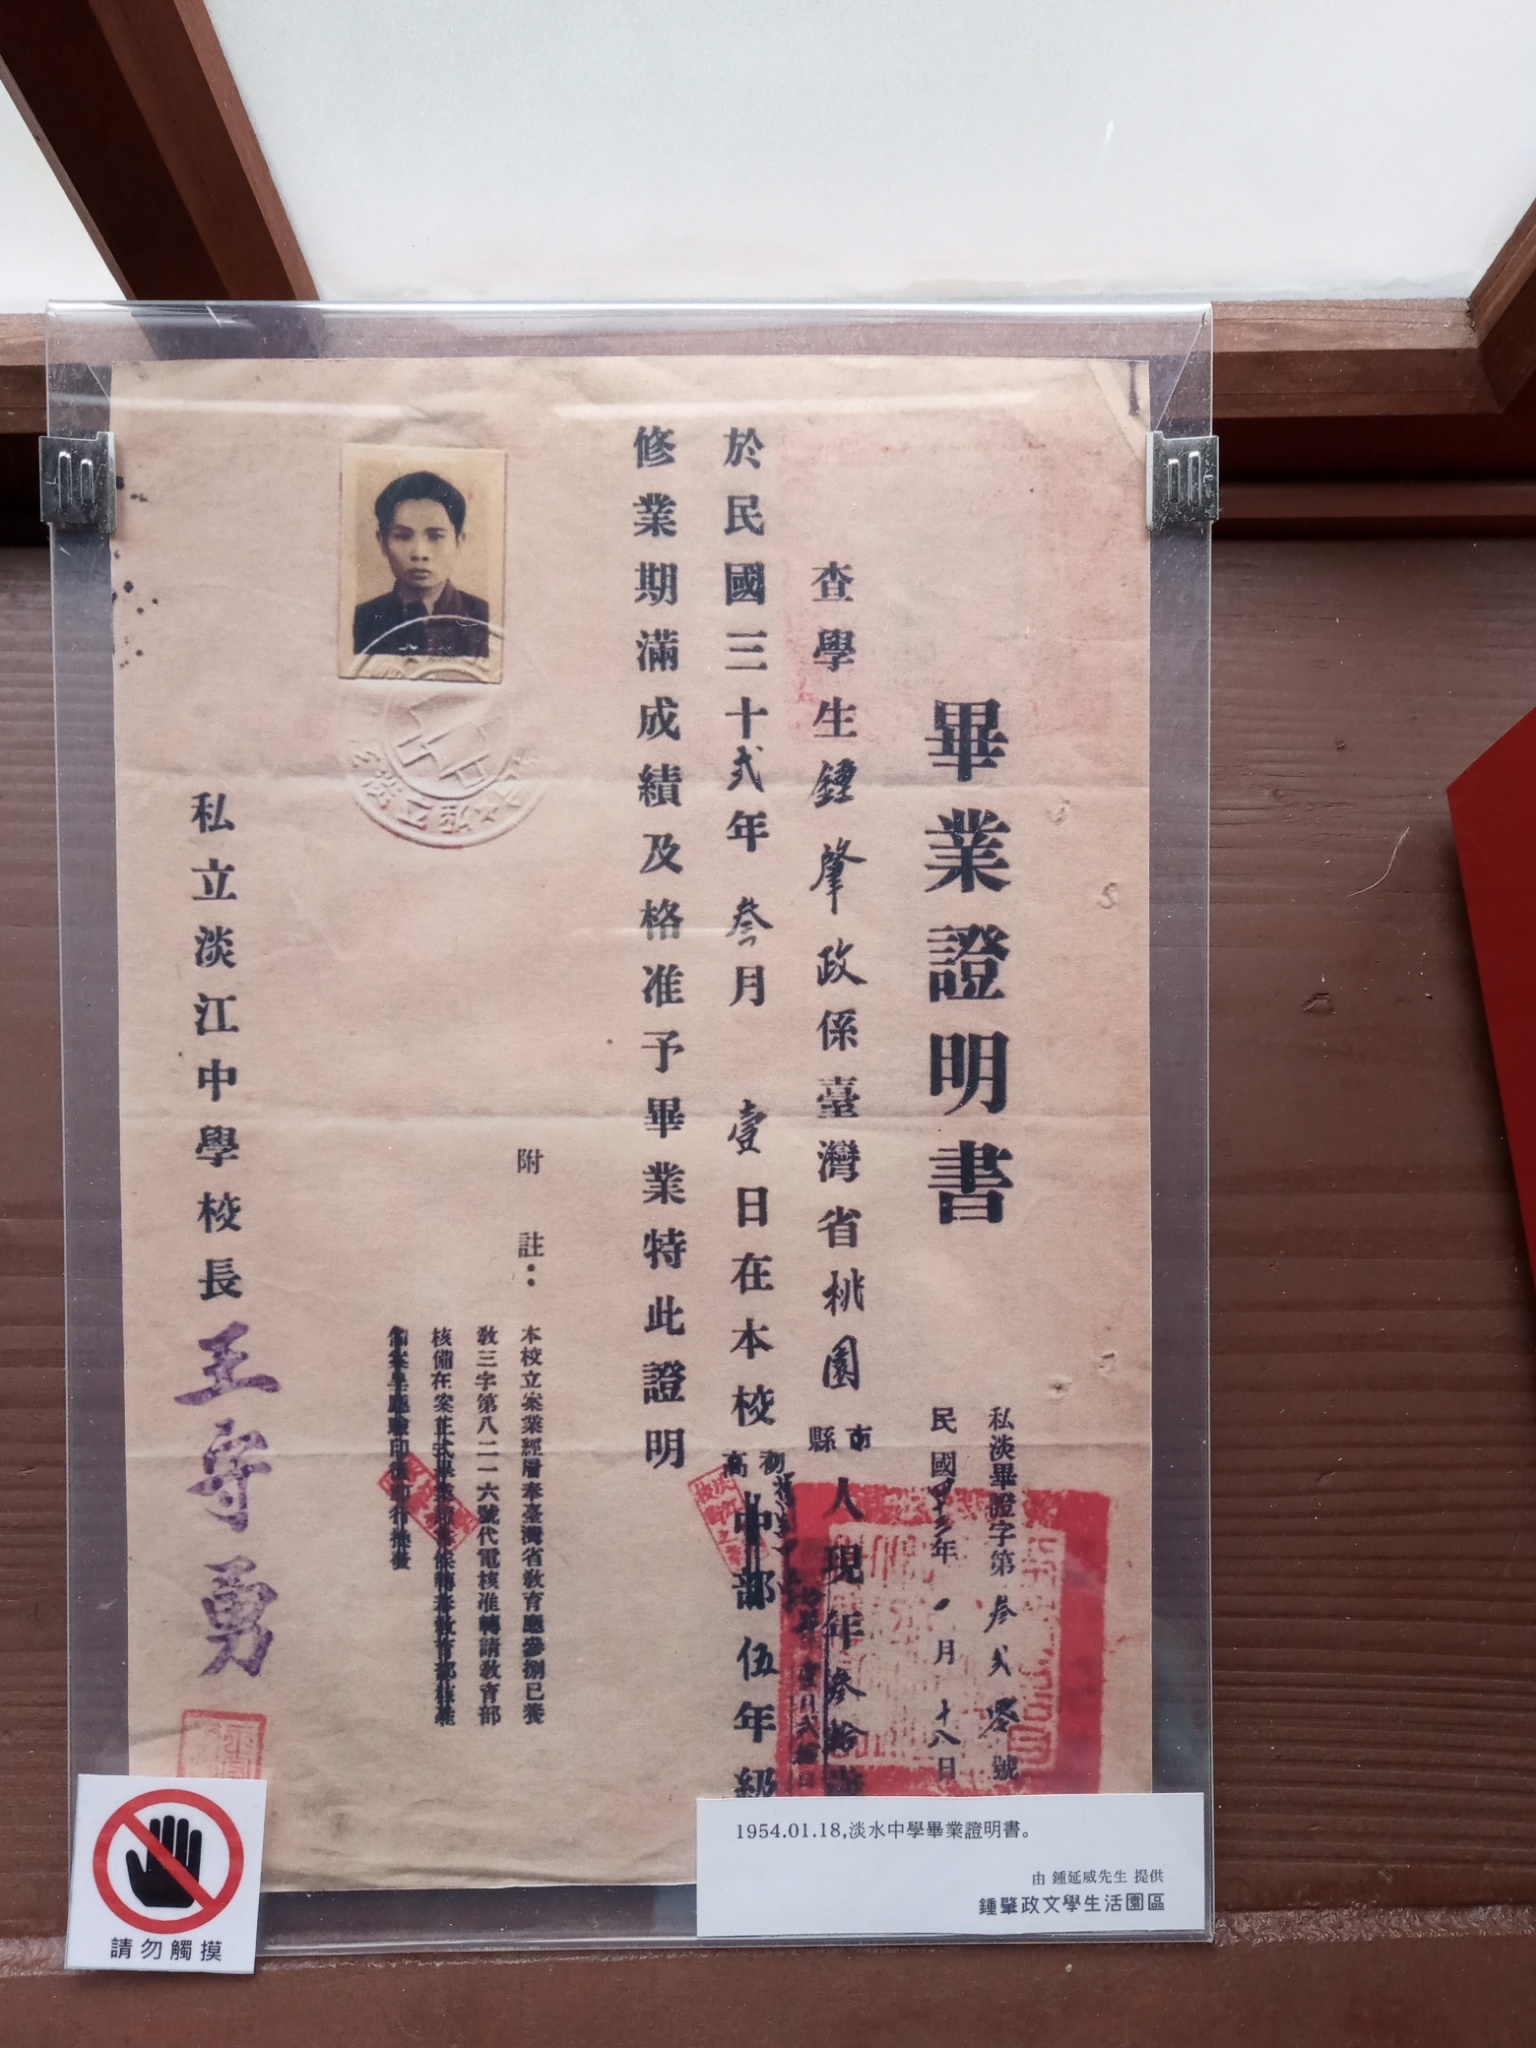 畢業證明書
私淡畢證字第叁貳零號
民國四十三年一月十八日
查學生鍾肇政係臺灣省桃園縣市人現年叁拾歲
於民國三十貳年叁月壹日在本校高初中部伍年級
修業期滿成績及格准予畢業特此證明
附註：
本校立案業經層奉臺灣省教育廳參捌已養
教三字第八二一六號代電核准轉請教育部
核備在案正式畢業證書俟轉奉教育部核准
私立淡江中學校長王守勇
請勿觸摸
1954.01.18,淡水中學畢業證明書。
由 鍾延威先生 提供
鍾肇政文學生活園區